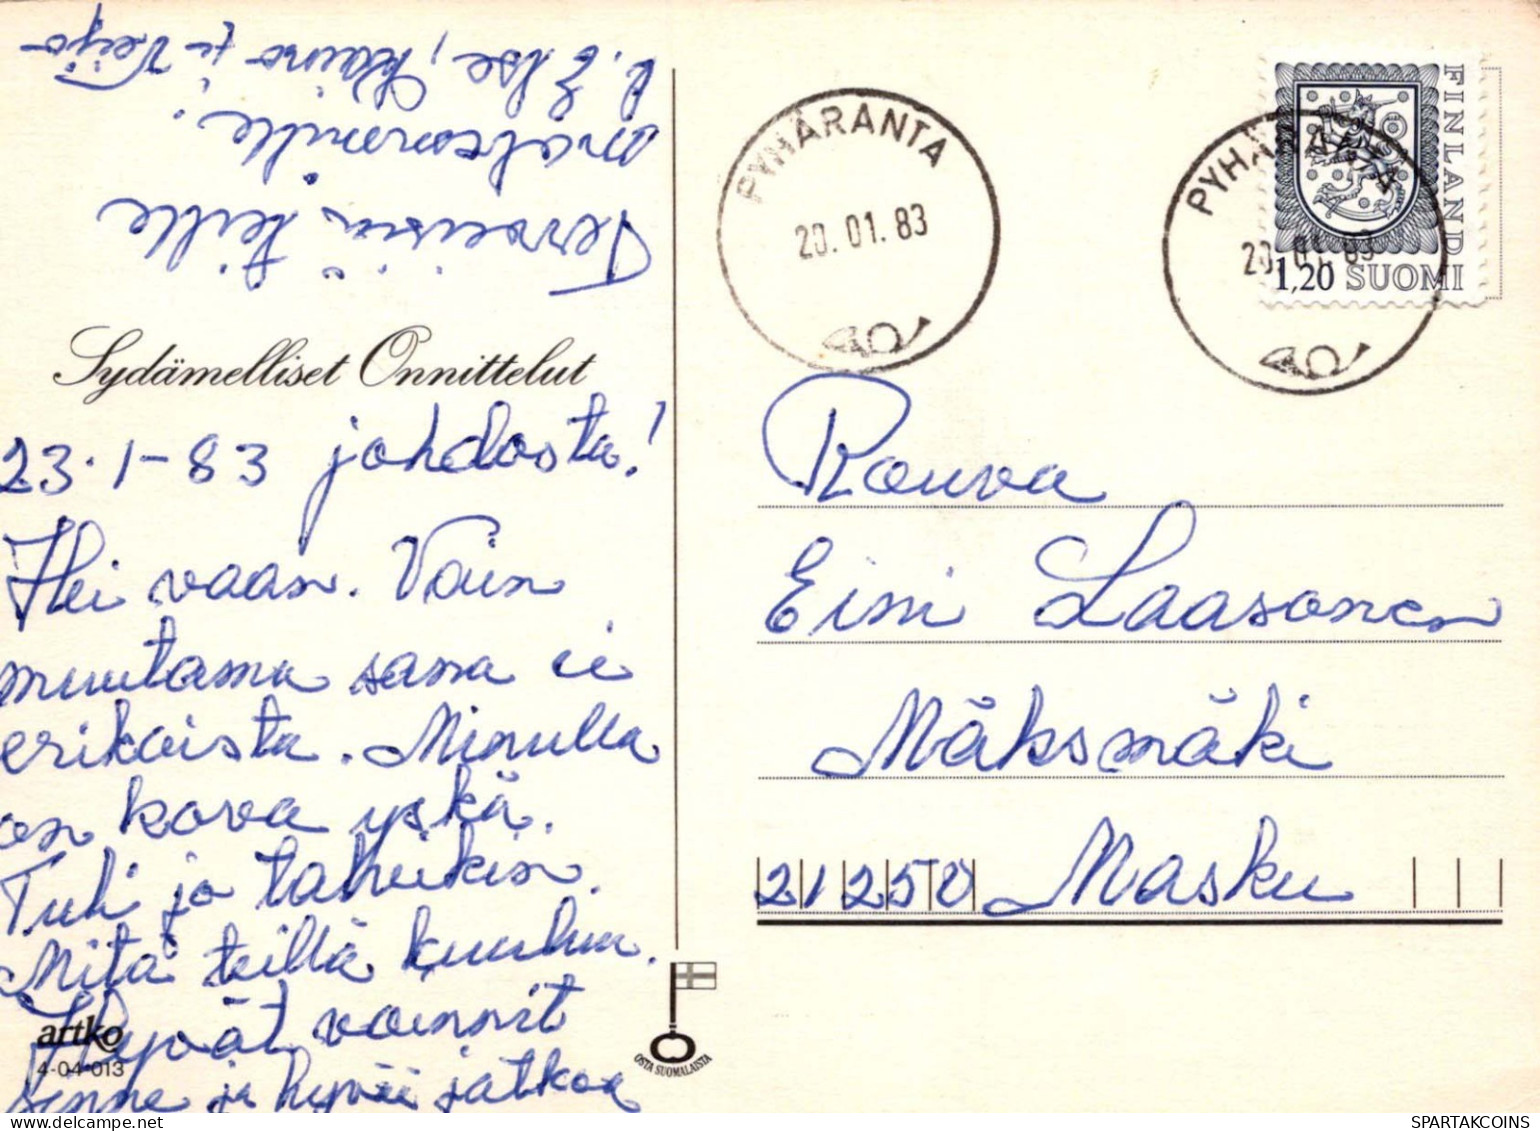 Sydämelliset Onnittelut
23.1-83 johdosta!
Hei vaan. Vain
muutama sana ei
erikoista. Minulla
on kova yskä.
Tuli ja
Mitä teillä kuuluu.
Hyvät voinnit
sinne ja hyvää jatkoa
Terveisiä teille
molemmille.
t. Else, Kaino ja Veijo
artko
4-04-013
OSTA SUOMALAISTA
PYHÄRANTA
20.01.83
PYHÄRANTA
20.01.83
FINLAND
1,20 SUOMI
Rouva
Eini Laasonen
Mäksmäki
21250 Masku
SPARTAKCOINS